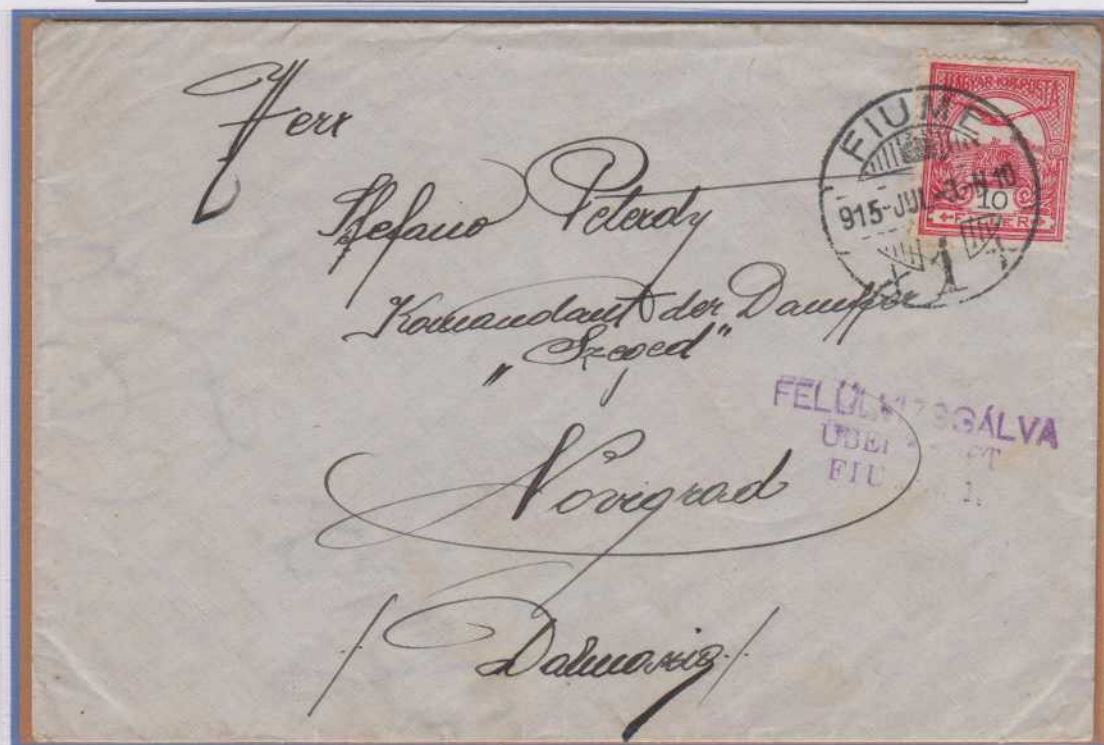 Herr
Stefano Peterdy
Komandant der Dampfer
„Szeged"
Novigrad
/Dalmazia/
MAGYAR KIR. POSTA
10
FILLÉR
FIUME
915-JUL
1
FELÜLVIZSGÁLVA